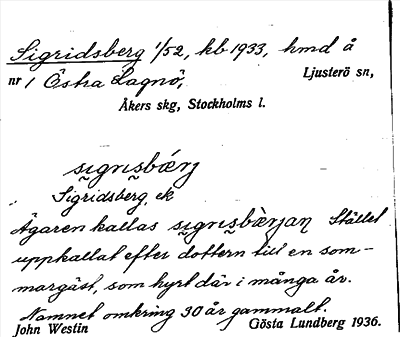 Sigridsberg 1/52, kb 1933, hmd å
nr 1 Östra Lagnö, Ljusterö sn,
Åkers skg, Stockholms l.
s̰igris̰bǽrj
Sigridsberg, ek
Ägaren kallas s̰igris̰bæ̀rjan Stället
uppkallat efter dottern till en som-
margäst, som hyrt där i många år.
Namnet omkring 30 år gammalt.
John Westin Gösta Lundberg 1936.